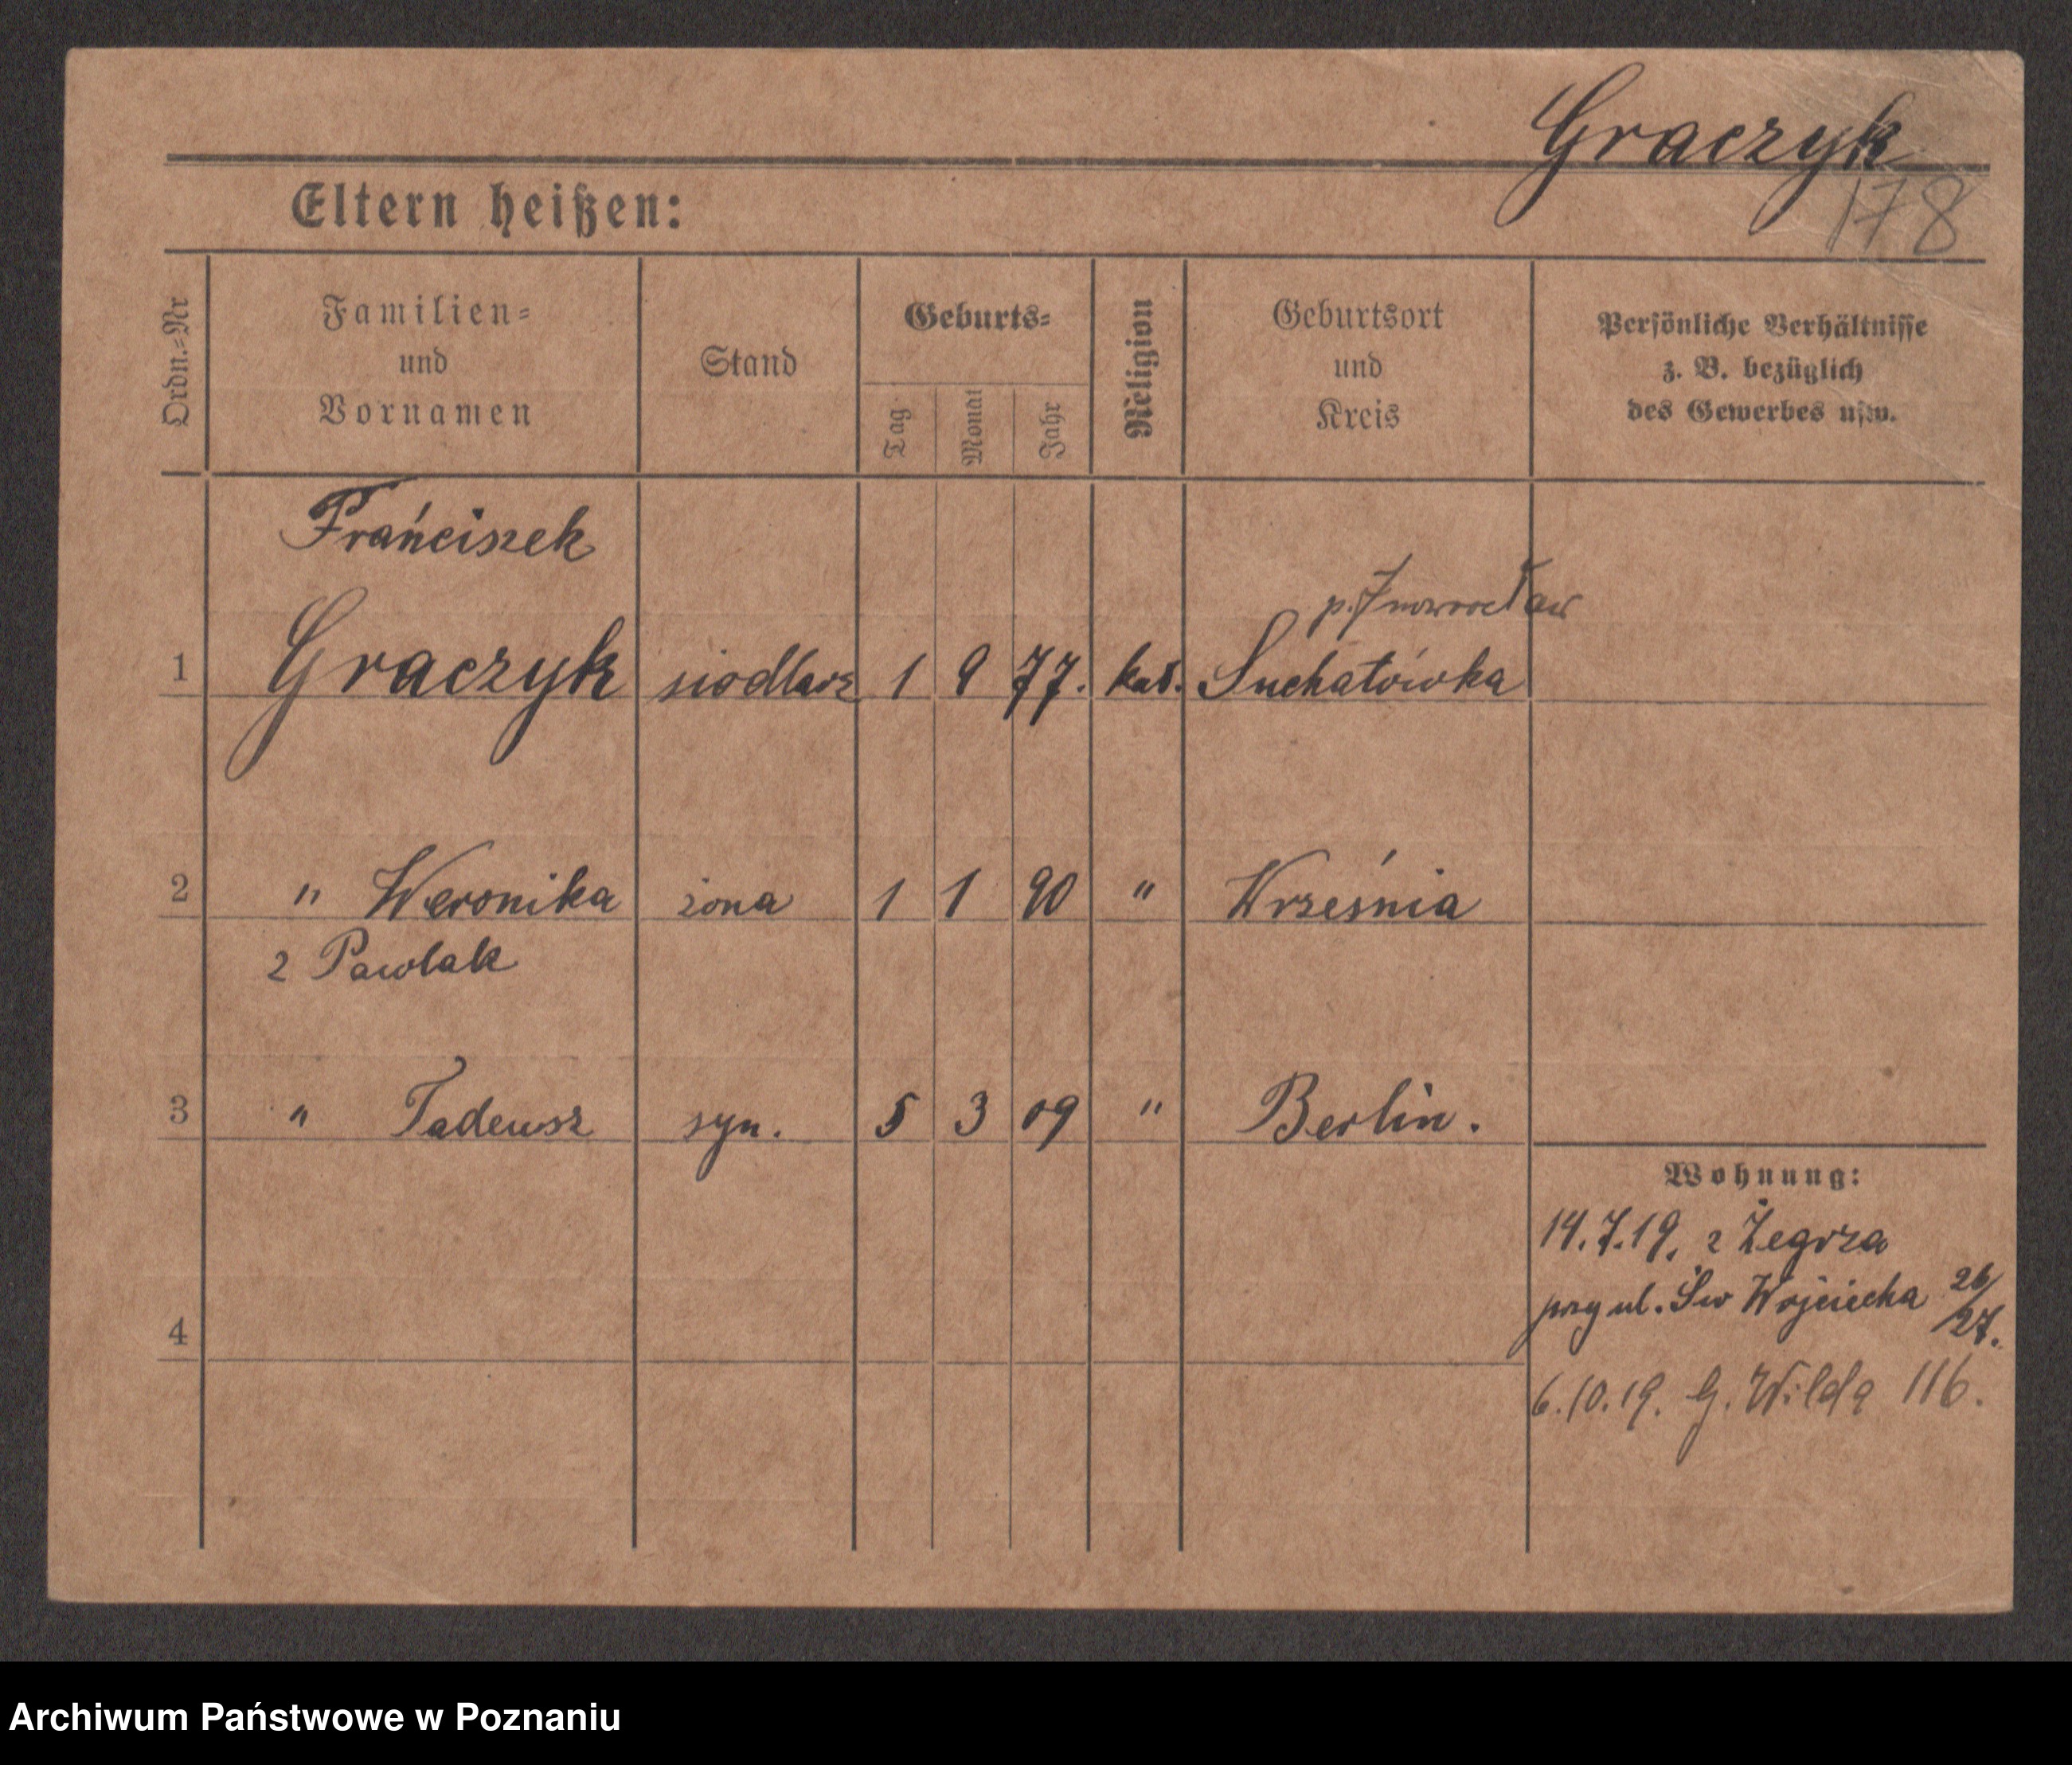 Graczyk
178
Eltern heißen:
Ordn.-Nr
Familien-
und
Vornamen
Stand
Geburts-
Tag
Monat
Jahr
Religion
Geburtsort
und
Kreis
Persönliche Verhältnisse
z. B. bezüglich
des Gewerbes usw.
Frańciszek
p. Inowrocław
1 Graczyk siodlarz 1 9 77. kat. Suchatówka
2 " Weronika żona 1 1 90 " Września
z Pawlak
3 " Tadeusz syn. 5 3 09 " Berlin.
Wohnung:
14.7.19. z Żegrza
przy ul. Św Wojciecha 26/27.
4
6.10.19. G. Wilda 116.
Archiwum Państwowe w Poznaniu